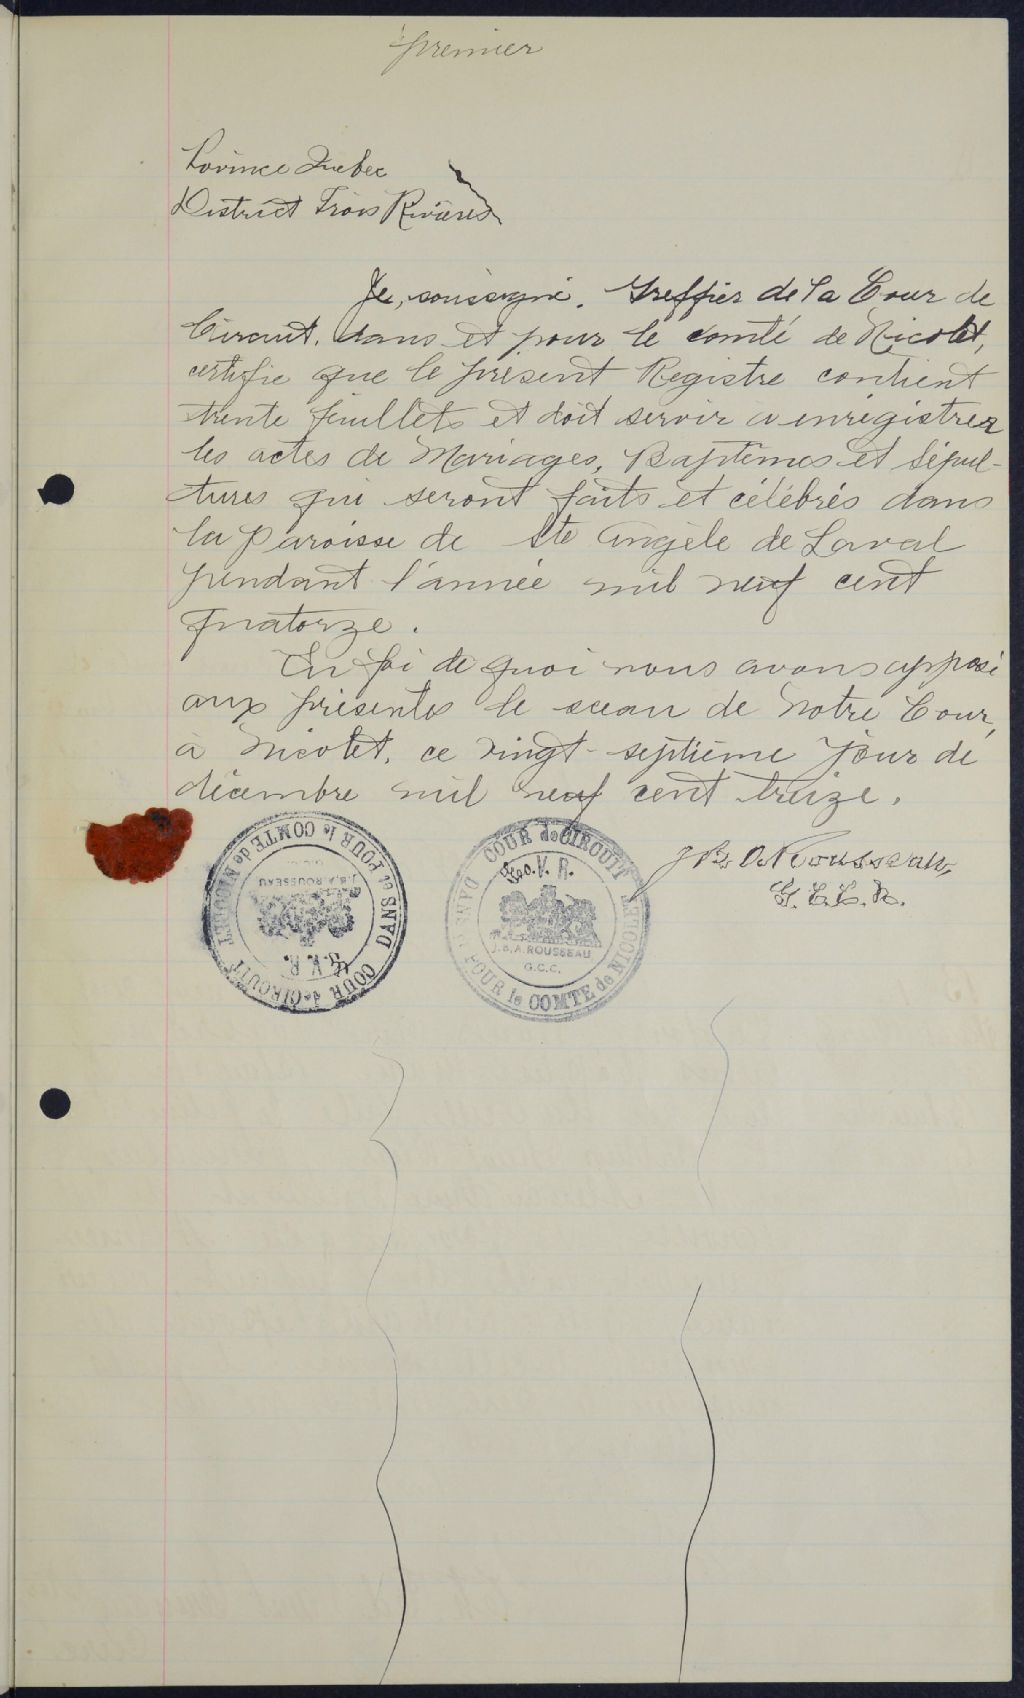 premier
Province Quebec
District Trois Rivières
Je, soussigné, Greffier de la Cour de
Circuit, dans et pour le comté de Nicolet,
certifie que le présent Registre contient
trente feuillets et doit servir a enrégistrer
les actes de Mariages, Baptêmes et Sépul-
tures qui seront faits et célébrés dans
la paroisse de Ste Angèle de Laval
pendant l'année mil neuf cent
quatorze.
En foi de quoi nous avons apposé
aux présentes le sceau de Notre Cour,
à Nicolet, ce vingt-septième jour de
décembre mil neuf cent treize.
COUR de CIRCUIT DANS et POUR le COMTE de NICOLET
V. R.
J.B.A. ROUSSEAU
G.C.C.
COUR de CIRCUIT DANS et POUR le COMTE de NICOLET
Geo. V. R.
J.B.A. ROUSSEAU
G.C.C.
Rousseau,